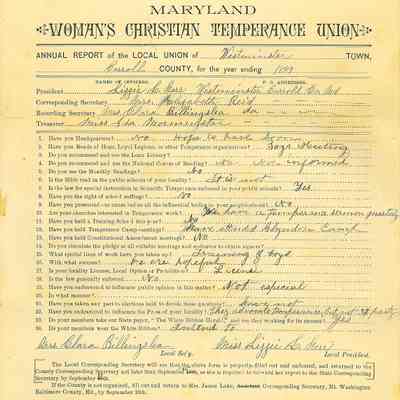 MARYLAND
WOMAN'S CHRISTIAN TEMPERANCE UNION
ANNUAL REPORT of the LOCAL UNION of Westminster TOWN,
Carroll COUNTY, for the year ending 1889
NAMES OF OFFICERS. P. O. ADDRESSES.
President Lizzie Westminster Carroll Co Md
Corresponding Secretary Mrs. Elizabeth Reid
Recording Secretary Mrs Clara Billingslea do
Treasurer Miss Ida
1. Have you Headquarters? No Hope to have soon
2. Have you Bands of Hope, Loyal Legions, or other Temperance organizations? Boys Meeting
3. Do you recommend and use the Loan Library?
4. Do you recommend and use the National Course of Reading? No Not informed
5. Do you use the Monthly Readings? No
6. Is the Bible read in the public schools of your locality? It is not
7. Is the law for special instruction in Scientific Temperance enforced in your public schools? Yes
8. Have you the right of school suffrage? No
9. Have you promoted or remonstrated as to all the influential bodies in your neighborhood? No
10. Are your churches interested in Temperance work? We have a temperance sermon quarterly
11. Have you held a Training School this year? No
12. Have you held Temperance Camp-meetings? Camp
13. Have you held Constitutional Amendment meetings? No
14. Do you circulate the pledge at all suitable meetings and endeavor to obtain signers?
15. What special lines of work have you taken up? boys
16. With what success? We are hopeful
17. Is your locality License, Local Option or Prohibition? License
18. Is the law generally enforced? No
19. Have you endeavored to influence public opinion in this matter? Not especial
20. In what manner?
21. Have you taken any part in elections held to decide these questions? have not
22. Have you endeavored to influence the Press of your locality? They advocate temperance, but not 3d party
23. Do your members take our State paper, "The White Ribbon Herald," and are they working for its success? Yes
24. Do your members wear the White Ribbon? Intend to
Mrs Clara Billingslea Local Sec'y. Miss Lizzie Local President.
The Local Corresponding Secretary will see that the above form is properly filled out and endorsed, and returned to the
County Corresponding Secretary not later than September
Secretary by September
If the County is not organized, fill out and return to Mrs. James Lake, Assistant Corresponding Secretary, Mt. Washington
Baltimore County, Md., by September 10th.